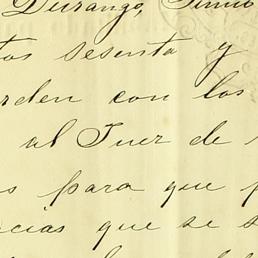 Durango, Junio
tos sesenta y
rden con los
al Juez de
s para que
cias que se s